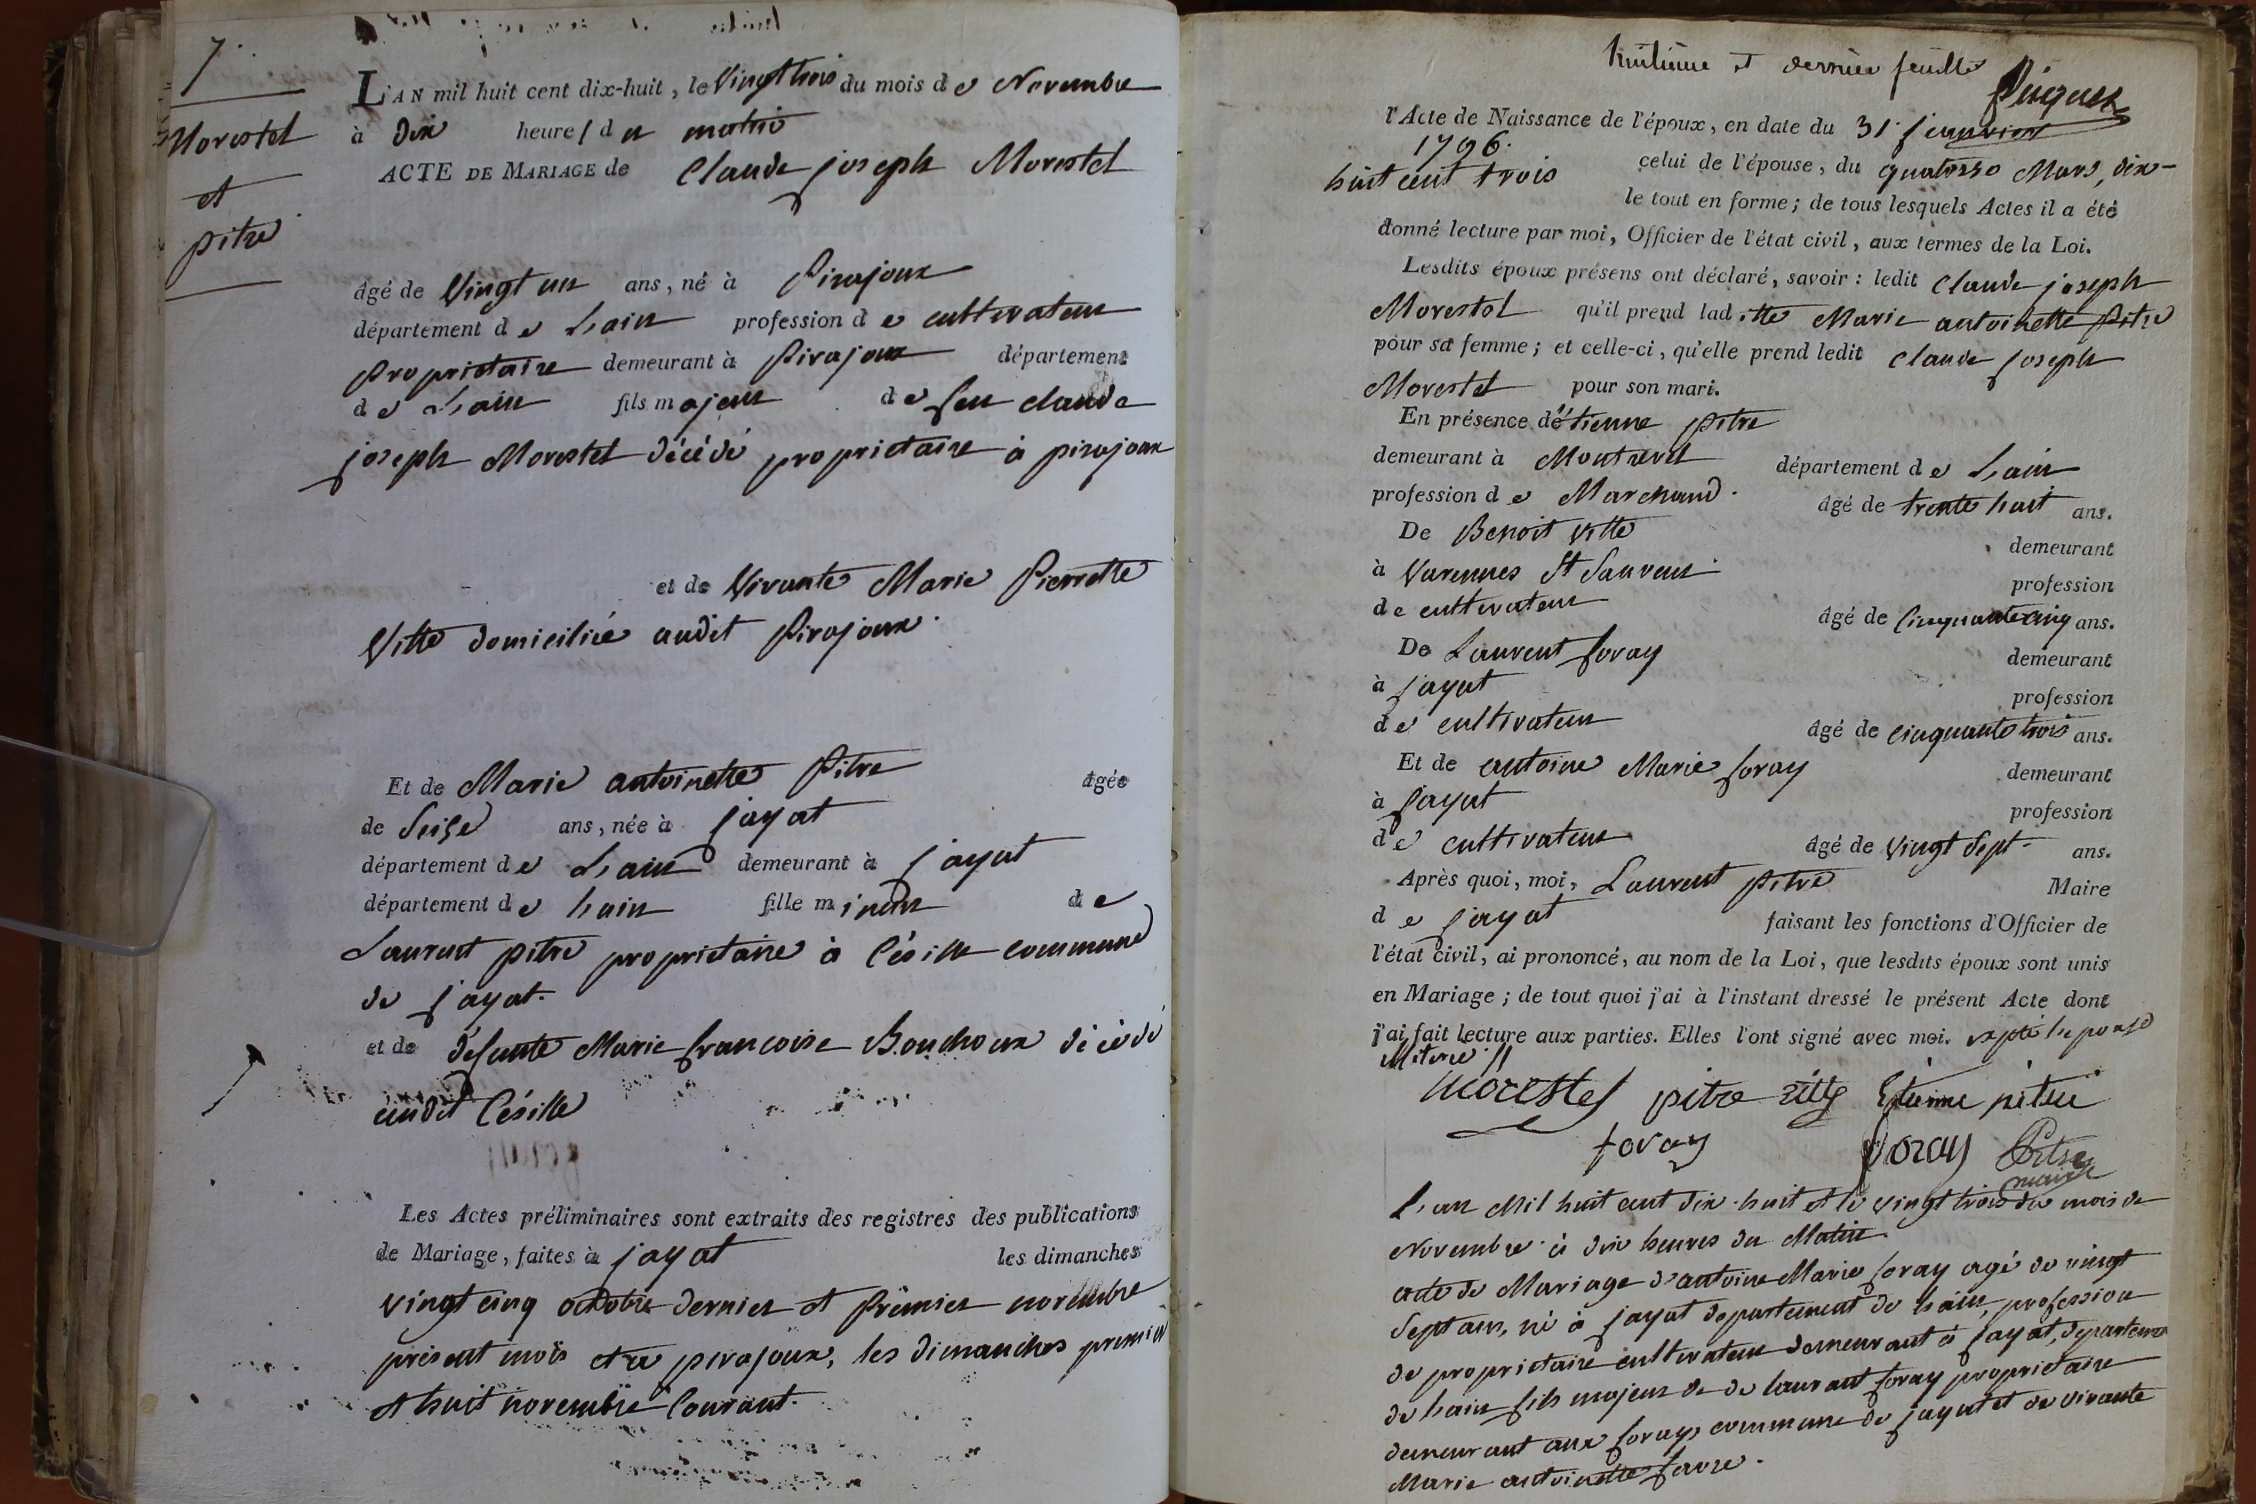 7.
Morestel
et
pitre
L'AN mil huit cent dix-huit, le Vingt trois du mois de Novembre
à dix heures du matin
ACTE DE MARIAGE de Claude joseph Morestel
âgé de Vingt un ans, né à Pirajoux
département de Lain profession de cultivateur
proprietaire demeurant à Pirajoux département
de Lain fils majeur de feu claude
joseph Morestel décédé proprietaire à pirajoux
et de Vivante Marie Pierrette
Vitte domiciliée audit Pirajoux.
Et de Marie antoinette Pitre âgée
de Seize ans, née à jayat
département de Lain demeurant à jayat
département de Lain fille mineur de
Laurent pitre proprietaire à Césille commune
de jayat.
et de défunte Marie francoise Bouchoux décédé
audit Césille
Les Actes préliminaires sont extraits des registres des publications
de Mariage, faites à jayat les dimanches
vingt cinq octobre dernier et Premier novembre
présent mois et a pirajoux, les dimanches premier
et huit novembre Courant.
huitième et dernière feuille
l'Acte de Naissance de l'époux, en date du 31 jeanvier
1796. celui de l'épouse, du quatorze Mars, dix-
huit cent trois le tout en forme; de tous lesquels Actes il a été
donné lecture par moi, Officier de l'état civil, aux termes de la Loi.
Lesdits époux présens ont déclaré, savoir: ledit Claude joseph
Morestel qu'il prend laditte Marie antoinette Pitre
pour sa femme; et celle-ci, qu'elle prend ledit Claude joseph
Morestel pour son mari.
En présence d'étienne pitre
demeurant à Montrevel département de Lain
profession de Marchand. âgé de trente huit ans.
De Benoit Vitte demeurant
à Varennes St Sauveur profession
de cultivateur âgé de Cinquante cinq ans.
De Laurent foray demeurant
à jayat profession
de cultivateur âgé de cinquante trois ans.
Et de antoine Marie foray demeurant
à jayat profession
de cultivateur âgé de vingt Sept ans.
Après quoi, moi, Laurent pitre Maire
de jayat faisant les fonctions d'Officier de
l'état civil, ai prononcé, au nom de la Loi, que lesdits époux sont unis
en Mariage; de tout quoi j'ai à l'instant dressé le présent Acte dont
j'ai fait lecture aux parties. Elles l'ont signé avec moi.
morestel pitre vitte Etienne pitre
foray foray Pitre
maire
L'an Mil huit cent dix-huit et le vingt trois du mois de
Novembre à dix heures du Matin
acte de Mariage d'antoine Marie foray agé de vingt
Sept ans, né à jayat departement de Lain, profession
de proprietaire cultivateur demeurant à jayat, departement
de Lain fils majeur de de laurant foray proprietaire
demeurant aux forays commune de jayat et de vivante
Marie antoinette favre.